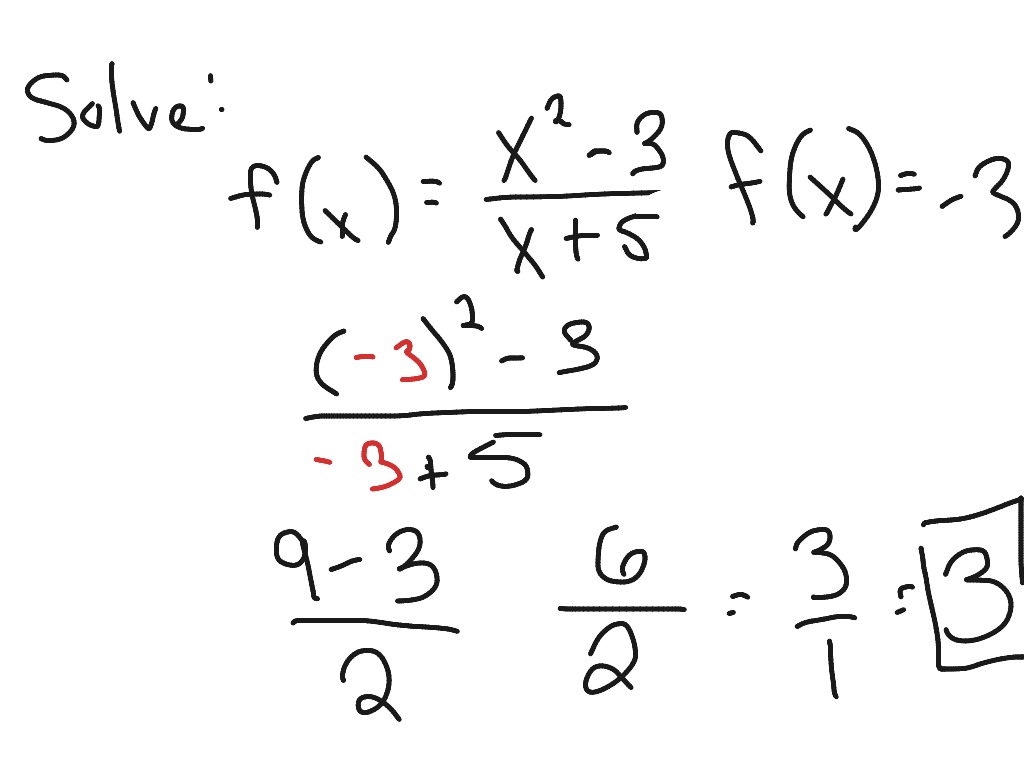 Solve:
f(x) = (x² - 3)/(x + 5) f(x) = -3
((-3)² - 3)/(-3 + 5)
(9 - 3)/2 6/2 = 3/1 = 3